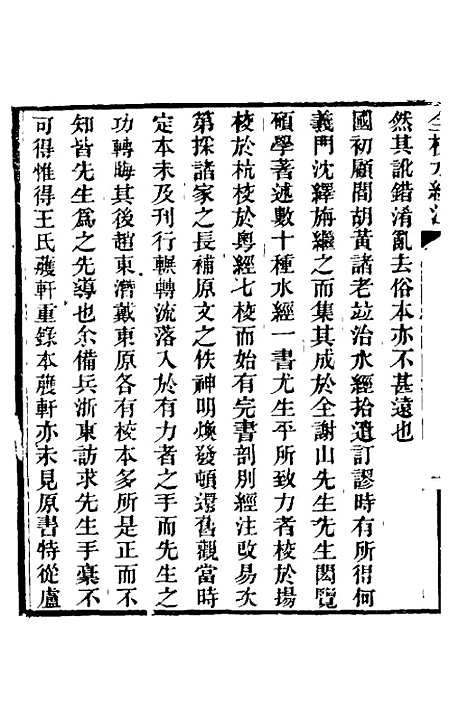 全校水經注
然其訛錯淆亂去俗本亦不甚遠也
國初顧閻胡黃諸老竝治水經拾遺訂謬時有所得何
義門沈繹旃繼之而集其成於全謝山先生先生閎覽
碩學著述數十種水經一書尤生平所致力者校於揚
校於杭校於粵經七校而始有完書剖別經注改易次
第採諸家之長補原文之佚神明煥發頓還舊觀當時
定本未及刊行輾轉流落入於有力者之手而先生之
功轉晦其後趙東潛戴東原各有校本多所是正而不
知皆先生爲之先導也余備兵浙東訪求先生手稾不
可得惟得王氏艧軒重錄本艧軒亦未見原書特從盧